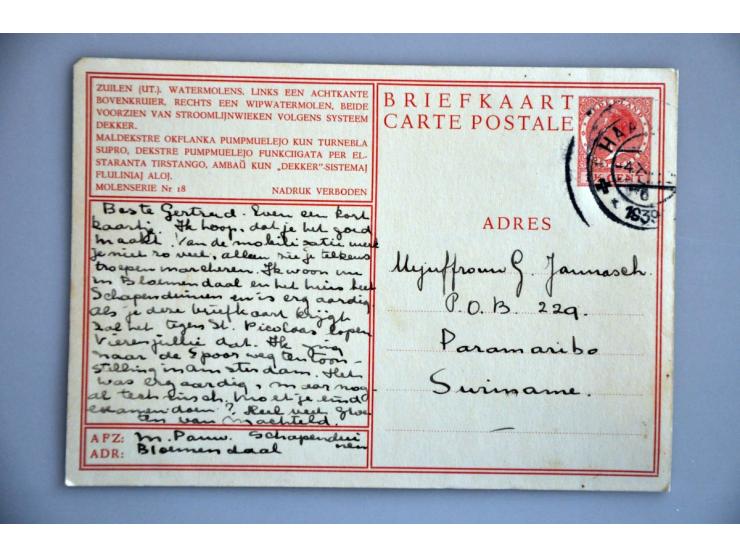 ZUILEN (UT.). WATERMOLENS. LINKS EEN ACHTKANTE
BOVENKRUIER, RECHTS EEN WIPWATERMOLEN, BEIDE
VOORZIEN VAN STROOMLIJNWIEKEN VOLGENS SYSTEEM
DEKKER.
MALDEKSTRE OKFLANKA PUMPMUELEJO KUN TURNEBLA
SUPRO, DEKSTRE PUMPMUELEJO FUNKCIIGATA PER EL-
STARANTA TIRSTANGO, AMBAŬ KUN „DEKKER"-SISTEMAJ
FLUILINIAJ ALOJ.
MOLENSERIE Nr 18 NADRUK VERBODEN
Beste Gertrud. Even een kort
kaartje. Ik hoop, dat je het goed
maakt. Van de mobilisatie merk
je niet zo veel, alleen zie je telkens
troepen marcheren. Ik woon nu
in Bloemendaal en het huis heet
Schapenduinen en is erg aardig.
als je deze briefkaart krijgt
zal het tegen St. Nicolaas lopen
Vieren jullie dat. Ik ging
naar de Spoorwegtentoon-
stelling in amsterdam. Het
was erg aardig, maar nog-
al technisch. Moet je eind
examen doen? Heel veel groe-
ten van Machteld.
AFZ: M. Pauw. Schapendui
nen
ADR: Bloemendaal
BRIEFKAART
CARTE POSTALE
NEDERLAND
HAA
1939
ADRES
Mejuffrouw G. Jannasch.
P.O.B. 229.
Paramaribo
Suriname.